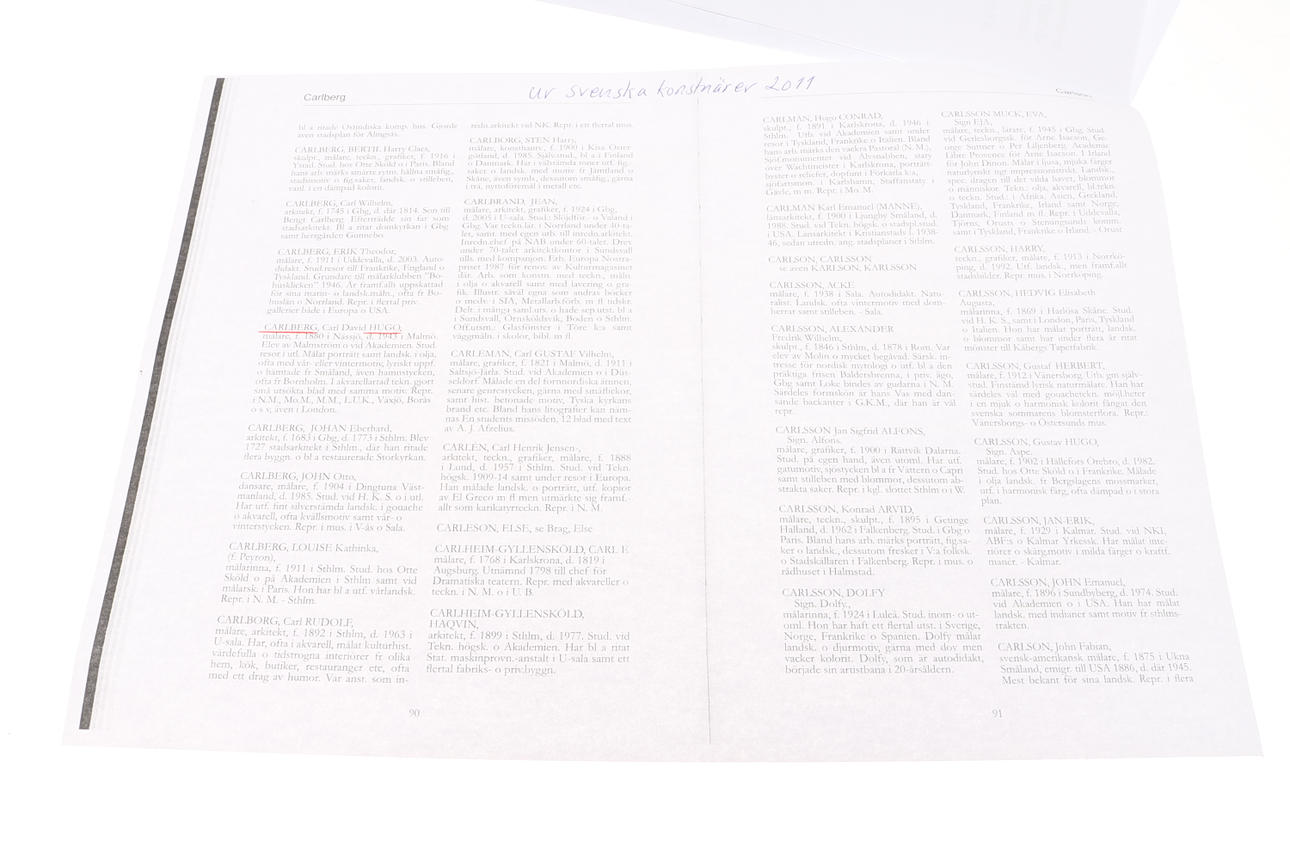 Carlberg
ur svenska konstnärer 2011
bl a ritade Ostindiska komp. hus. Gjorde
även stadsplan för Alingsås.
CARLBERG, BERTH Harry Claes,
skulpt., målare, teckn., grafiker, f. 1916 i
Ystad. Stud. hos Otte Sköld o i Paris. Bland
hans arb. märks smärre rytm. hållna småfig.,
stadsmotiv o fig.saker, landsk. o stilleben,
vanl. i en dämpad kolorit.
CARLBERG, Carl Wilhelm,
arkitekt, f. 1745 i Gbg, d. där 1814. Son till
Bengt Carlberg. Efterträdde sin far som
stadsarkitekt. Bl a ritat domkyrkan i Gbg
samt herrgården Gunnebo.
CARLBERG, ERIK Theodor,
målare, f. 1911 i Uddevalla, d. 2003. Auto-
didakt. Stud.resor till Frankrike, England o
Tyskland. Grundare till målarklubben "Bo-
husklicken" 1946. Är framf.allt uppskattad
för sina marin- o landsk.måln., ofta fr Bo-
huslän o Norrland. Repr. i flertal priv.
gallerier både i Europa o USA.
CARLBERG, Carl David HUGO,
målare, f. 1880 i Nässjö, d. 1943 i Malmö.
Elev av Malmström o vid Akademien. Stud.
resor i utl. Målat porträtt samt landsk. i olja,
ofta med vår- eller vintermotiv, lyriskt uppf.
o hämtade fr Småland, även hamnstycken,
ofta fr Bornholm. I akvarellartad tekn. gjort
små utsökta blad med samma motiv. Repr.
i N.M., Mo.M., M.M., L.U.K., Växjö, Borås
o s v, även i London.
CARLBERG, JOHAN Eberhard,
arkitekt, f. 1683 i Gbg, d. 1773 i Sthlm. Blev
1727 stadsarkitekt i Sthlm., där han ritade
flera byggn. o bl a restaurerade Storkyrkan.
CARLBERG, JOHN Otto,
dansare, målare, f. 1904 i Dingtuna Väst-
manland, d. 1985. Stud. vid H. K. S. o i utl.
Har utf. fint silverstämda landsk. i gouache
o akvarell, ofta kvällsmotiv samt vår- o
vinterstycken. Repr. i mus. i V-ås o Sala.
CARLBERG, LOUISE Kathinka,
(f. Peyron),
målarinna, f. 1911 i Sthlm. Stud. hos Otte
Sköld o på Akademien i Sthlm samt vid
målarsk. i Paris. Hon har bl a utf. vårlandsk.
Repr. i N. M. - Sthlm.
CARLBORG, Carl RUDOLF,
målare, arkitekt, f. 1892 i Sthlm, d. 1963 i
U-sala. Har, ofta i akvarell, målat kulturhist.
värdefulla o tidstrogna interiörer fr olika
hem, kök, butiker, restauranger etc, ofta
med ett drag av humor. Var anst. som in-
redn.arkitekt vid NK. Repr. i ett flertal mus.
CARLBORG, STEN Harry,
målare, konsthantv., f. 1900 i Kisa Öster-
götland, d. 1985. Självstud., bl a i Finland
o Danmark. Har i välstämda toner utf. fig.
saker o landsk. med motiv fr Jämtland o
Skåne, även symb., dessutom småfig., gärna
i trä, nyttoföremål i metall etc.
CARLBRAND, JEAN,
målare, arkitekt, grafiker, f. 1924 i Gbg,
d. 2005 i U-sala. Stud: Slöjdför- o Valand i
Gbg. Var teckn.lär. i Norrland under 40-ta-
let, samt. med egen arb. till inredn.arkitekt.
Inredn.chef på NAB under 60-talet. Drev
under 70-talet arkitektkontor i Sundsvall
tills. med kompanjon. Erh. Europa Nostra-
priset 1987 för renov. av Kulturmagasinet
där. Arb. som konstn. med teckn., måln.
i olja o akvarell samt med lavering o gra-
fik. Illustr. såväl egna som andras böcker
o medv. i SIA, Metallarb.förb. m fl tidskr.
Delt. i många saml.uts. o hade sep.utst. bl a
i Sundsvall, Örnsköldsvik, Boden o Sthlm.
Off.utsm.: Glasfönster i Töre k:a samt
väggmåln. i skolor, bibl. m fl.
CARLEMAN, Carl GUSTAF Vilhelm,
målare, grafiker, f. 1821 i Malmö, d. 1911 i
Saltsjö-Järla. Stud. vid Akademien o i Düs-
seldorf. Målade en del fornnordiska ämnen,
senare genrestycken, gärna med småflickor,
samt hist. betonade motiv, Tyska kyrkans
brand etc. Bland hans litografier kan näm-
nas En students missöden, 12 blad med text
av A. J. Afzelius.
CARLÉN, Carl Henrik Jensen-,
arkitekt, teckn., grafiker, målare, f. 1888
i Lund, d. 1957 i Sthlm. Stud. vid Tekn.
högsk. 1909-14 samt under resor i Europa.
Han målade landsk. o porträtt, utf. kopior
av El Greco m fl men utmärkte sig framf.
allt som karikatyrteckn. Repr. i N. M.
CARLESON, ELSE, se Brag, Else
CARLHEIM-GYLLENSKÖLD, CARL E
målare, f. 1768 i Karlskrona, d. 1819 i
Augsburg. Utnämnd 1798 till chef för
Dramatiska teatern. Repr. med akvareller o
teckn. i N. M. o i U. B.
CARLHEIM-GYLLENSKÖLD,
HAQVIN,
arkitekt, f. 1899 i Sthlm, d. 1977. Stud. vid
Tekn. högsk. o Akademien. Har bl a ritat
Stat. maskinprovn.-anstalt i U-sala samt ett
flertal fabriks- o priv.byggn.
90
CARLMAN, Hugo CONRAD,
skulpt., f. 1891 i Karlskrona, d. 1946 i
Sthlm. Utb. vid Akademien samt under
resor i Tyskland, Frankrike o Italien. Bland
hans arb. märks den vackra Pastoral (N. M.),
Sjöf.monumentet vid Älvsnabben, staty
över Wachtmeister i Karlskrona, porträtt-
byster o reliefer, dopfunt i Förkärla k:a,
sjöfartsmon. i Karlshamn, Staffanstaty i
Gävle, m m. Repr. i Mo. M.
CARLMAN Karl Emanuel (MANNE),
länsarkitekt, f. 1900 i Ljungby Småland, d.
1988. Stud. vid Tekn. högsk. o stadspl.stud.
i USA. Länsarkitekt i Kristianstads l. 1938-
46, sedan utredn. ang. stadsplaner i Sthlm.
CARLSON, CARLSSON
se även KARLSON, KARLSSON
CARLSSON, ACKE
målare, f. 1938 i Sala. Autodidakt. Natu-
ralist. Landsk, ofta vintermotiv med dom-
herrar samt stilleben. - Sala.
CARLSSON, ALEXANDER
Fredrik Wilhelm,
skulpt., f. 1846 i Sthlm, d. 1878 i Rom. Var
elev av Molin o mycket begåvad. Särsk. in-
tresse för nordisk mytologi o utf. bl a den
präktiga frisen Baldersbrenna, i priv. ägo,
Gbg samt Loke bindes av gudarna i N. M.
Särdeles formskön är hans Vas med dan-
sande backanter i G.K.M., där han är väl
repr.
CARLSSON Jan Sigfrid ALFONS,
Sign. Alfons.
målare, grafiker, f. 1900 i Rättvik Dalarna.
Stud. på egen hand, även utoml. Har utf.
gatumotiv, sjöstycken bl a fr Vättern o Capri
samt stilleben med blommor, dessutom ab-
strakta saker. Repr. i kgl. slottet Sthlm o i W.
CARLSSON, Konrad ARVID,
målare, teckn., skulpt., f. 1895 i Getinge
Halland, d. 1962 i Falkenberg. Stud. i Gbg o
Paris. Bland hans arb. märks porträtt, fig.sa-
ker o landsk., dessutom fresker i V:a folksk.
o Stadskällaren i Falkenberg. Repr. i mus. o
rådhuset i Halmstad.
CARLSSON, DOLFY
Sign. Dolfy.,
målarinna, f. 1924 i Luleå. Stud. inom- o ut-
oml. Hon har haft ett flertal utst. i Sverige,
Norge, Frankrike o Spanien. Dolfy målar
landsk. o djurmotiv, gärna med dov men
vacker kolorit. Dolfy, som är autodidakt,
började sin artistbana i 20-årsåldern.
CARLSSON MUCK, EVA,
Sign EJA,
målare, teckn., lärare, f. 1945 i Gbg. Stud.
vid Gerlesborgssk. för Arne Isacson, Ge-
orge Suttner o Per Liljenberg, Academie
Libre Provence för Arne Isacson. I Irland
för John Dinon. Målar i ljusa, mjuka färger
naturlyriskt ngt impressionistiskt. Landsk.,
spec. dragen till det vilda havet, blommor
o människor. Tekn.: olja, akvarell, bl.tekn.
o teckn. Stud.: i Afrika, Asien, Grekland,
Tyskland, Frankrike, Irland samt Norge,
Danmark, Finland m fl. Repr.: i Uddevalla,
Tjörns, Orusts o Stenungsunds komm.
samt i Tyskland, Frankrike o Irland. - Orust
CARLSSON, HARRY,
teckn., grafiker, målare, f. 1913 i Norrkö-
ping, d. 1992. Utf. landsk., men framf.allt
stadsbilder. Repr. mus. i Norrköping.
CARLSSON, HEDVIG Elisabeth
Augusta,
målarinna, f. 1869 i Harlösa Skåne. Stud.
vid H. K. S., samt i London, Paris, Tyskland
o Italien. Hon har målat porträtt, landsk.
o blommor samt har under flera år ritat
mönster till Kåbergs Tapetfabrik.
CARLSSON, Gustaf HERBERT,
målare, f. 1912 i Vänersborg. Utb. gm själv-
stud. Finstämd lyrisk naturmålare. Han har
särdeles väl med gouachetekn. möjl.heter
i en mjuk o harmonisk kolorit fångat den
svenska sommarens blomsterflora. Repr.:
Vänersborgs- o Östersunds mus.
CARLSSON, Gustav HUGO,
Sign. Aspe.
målare, f. 1902 i Hällefors Örebro, d. 1982.
Stud. hos Otte Sköld o i Frankrike. Målade
i olja landsk. fr Bergslagens mossmarker,
utf. i harmonisk färg, ofta dämpad o i stora
plan.
CARLSSON, JAN-ERIK,
målare, f. 1929 i Kalmar. Stud. vid NKI,
ABF:s o Kalmar Yrkessk. Har målat inte-
riörer o skärg.motiv i milda färger o kraftf.
maner. - Kalmar.
CARLSSON, JOHN Emanuel,
målare, f. 1896 i Sundbyberg, d. 1974. Stud.
vid Akademien o i USA. Han har målat
landsk. med indianer samt motiv fr sthlms-
trakten.
CARLSON, John Fabian,
svensk-amerikansk målare, f. 1875 i Ukna
Småland, emigr. till USA 1886, d. där 1945.
Mest bekant för sina landsk. Repr. i flera
91